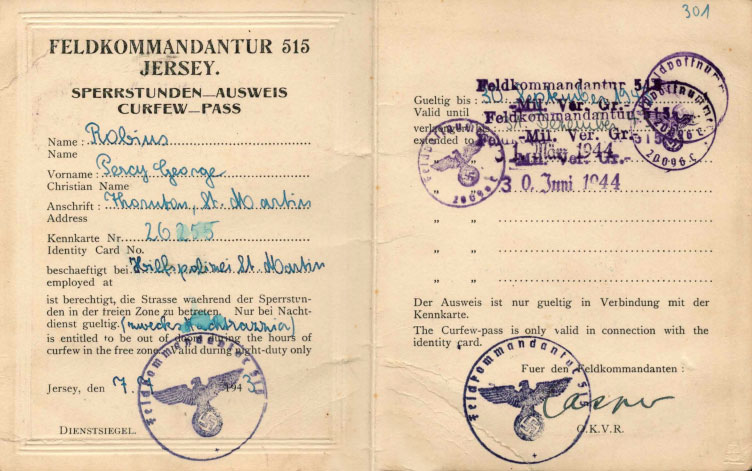 FELDKOMMANDANTUR 515
JERSEY.
SPERRSTUNDEN—AUSWEIS
CURFEW—PASS
Name : Robins
Name
Vorname : Percy George
Christian Name
Anschrift : Thornton, St. Martin
Address
Kennkarte Nr. 26255
Identity Card No.
beschaeftigt bei Hilfspolizei St. Martin
employed at
ist berechtigt, die Strasse waehrend der Sperrstun-
den in der freien Zone zu betreten. Nur bei Nacht-
dienst gueltig.
is entitled to be out of doors during the hours of
curfew in the free zone. Valid during night-duty only
Jersey, den 7. 194
Feldkommandantur 515
DIENSTSIEGEL.
301
Feldkommandantur 515
-Mil. Ver. Gr.-
Gueltig bis : 30. September 194
Valid until
Feldkommandantur 515
verlaengert bis : 31. Dezember
-Mil. Ver. Gr.-
extended to
31. März 1944
-Mil. Ver. Gr.-
30. Juni 1944
Feldpostnummer
20096 C
Feldpostnummer
20096 C
„ „
„ „
„ „
„ „
Der Ausweis ist nur gueltig in Verbindung mit der
Kennkarte.
The Curfew-pass is only valid in connection with the
identity card.
Fuer den Feldkommandanten :
Feldkommandantur 515
O.K.V.R.